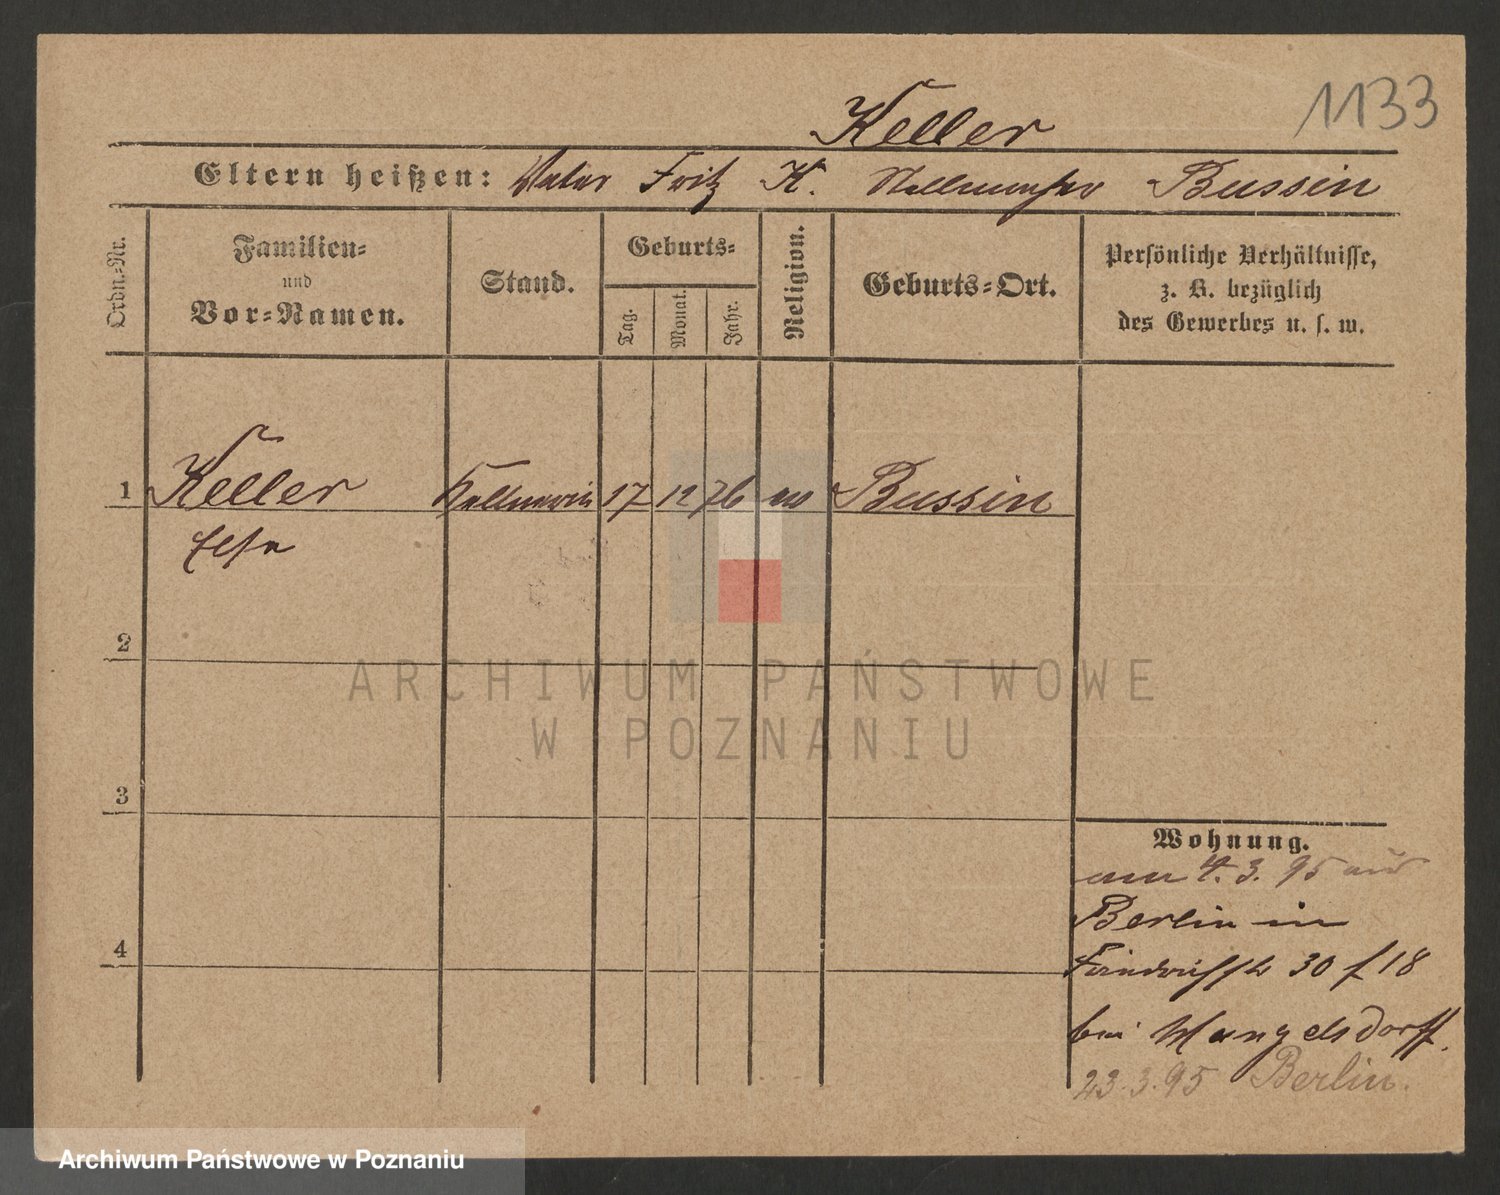 1133
Keller
Eltern heißen: Vater Fritz K. Bussin
Ordn.-Nr.
Familien-
und
Vor-Namen.
Stand.
Geburts-
Tag.
Monat.
Jahr.
Religion.
Geburts-Ort.
Persönliche Verhältnisse,
z. B. bezüglich
des Gewerbes u. s. w.
1 Keller Kellnerin 17 12 76 ev Bussin
Else
2
3
4
Wohnung.
am 4.3.95 aus
Berlin in
Friedrichstr 30 f 18
bei Mangelsdorff.
23.3.95 Berlin.
ARCHIWUM PAŃSTWOWE
W POZNANIU
Archiwum Państwowe w Poznaniu